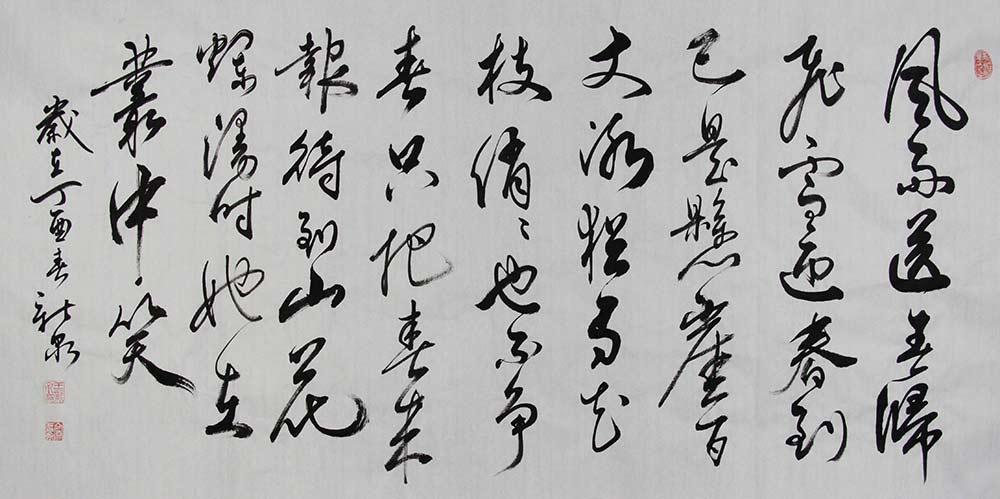 風雨送春歸
飛雪迎春到
已是懸崖百
丈冰猶有花
枝俏〻也不争
春只把春来
報待到山花
爛漫时她在
叢中笑
歲在丁酉春社泉